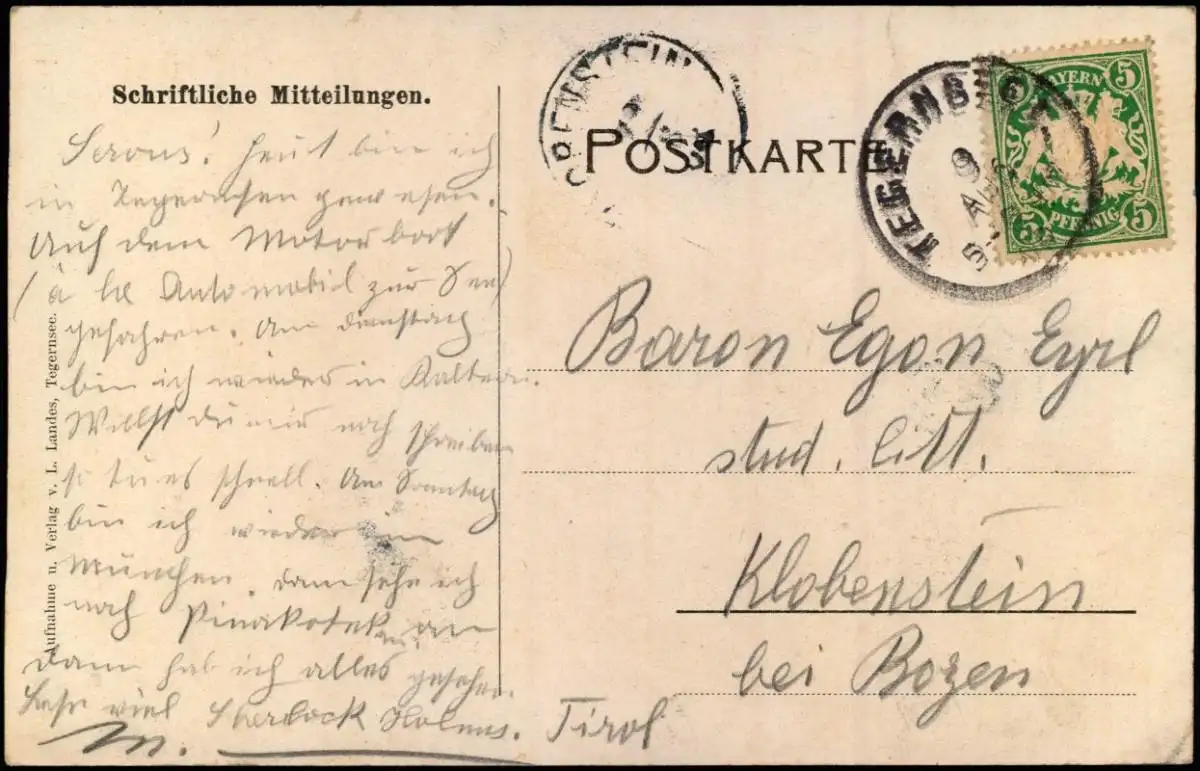 Schriftliche Mitteilungen.
Servus! Heut bin ich
in Tegernsee gewesen.
Auf dem Motorboot
(à la Automobil zur See)
gefahren. Am Dienstag
bin ich wieder in Kaltern.
Willst du mir noch schreiben
so tu es schnell. Am Sonntag
bin ich wieder in
München. Dann sehe ich
noch Pinakotek an
dann hab ich alles gesehen.
Lese viel Sherlock Holmes.
M.
Aufnahme u. Verlag v. L. Landes, Tegernsee.
POSTKARTE
TEGERNSEE
9
BAYERN
5
5
5
PFENNIG
5
Baron Egon Eyrl
stud. litt.
Klobenstein
bei Bozen
Tirol